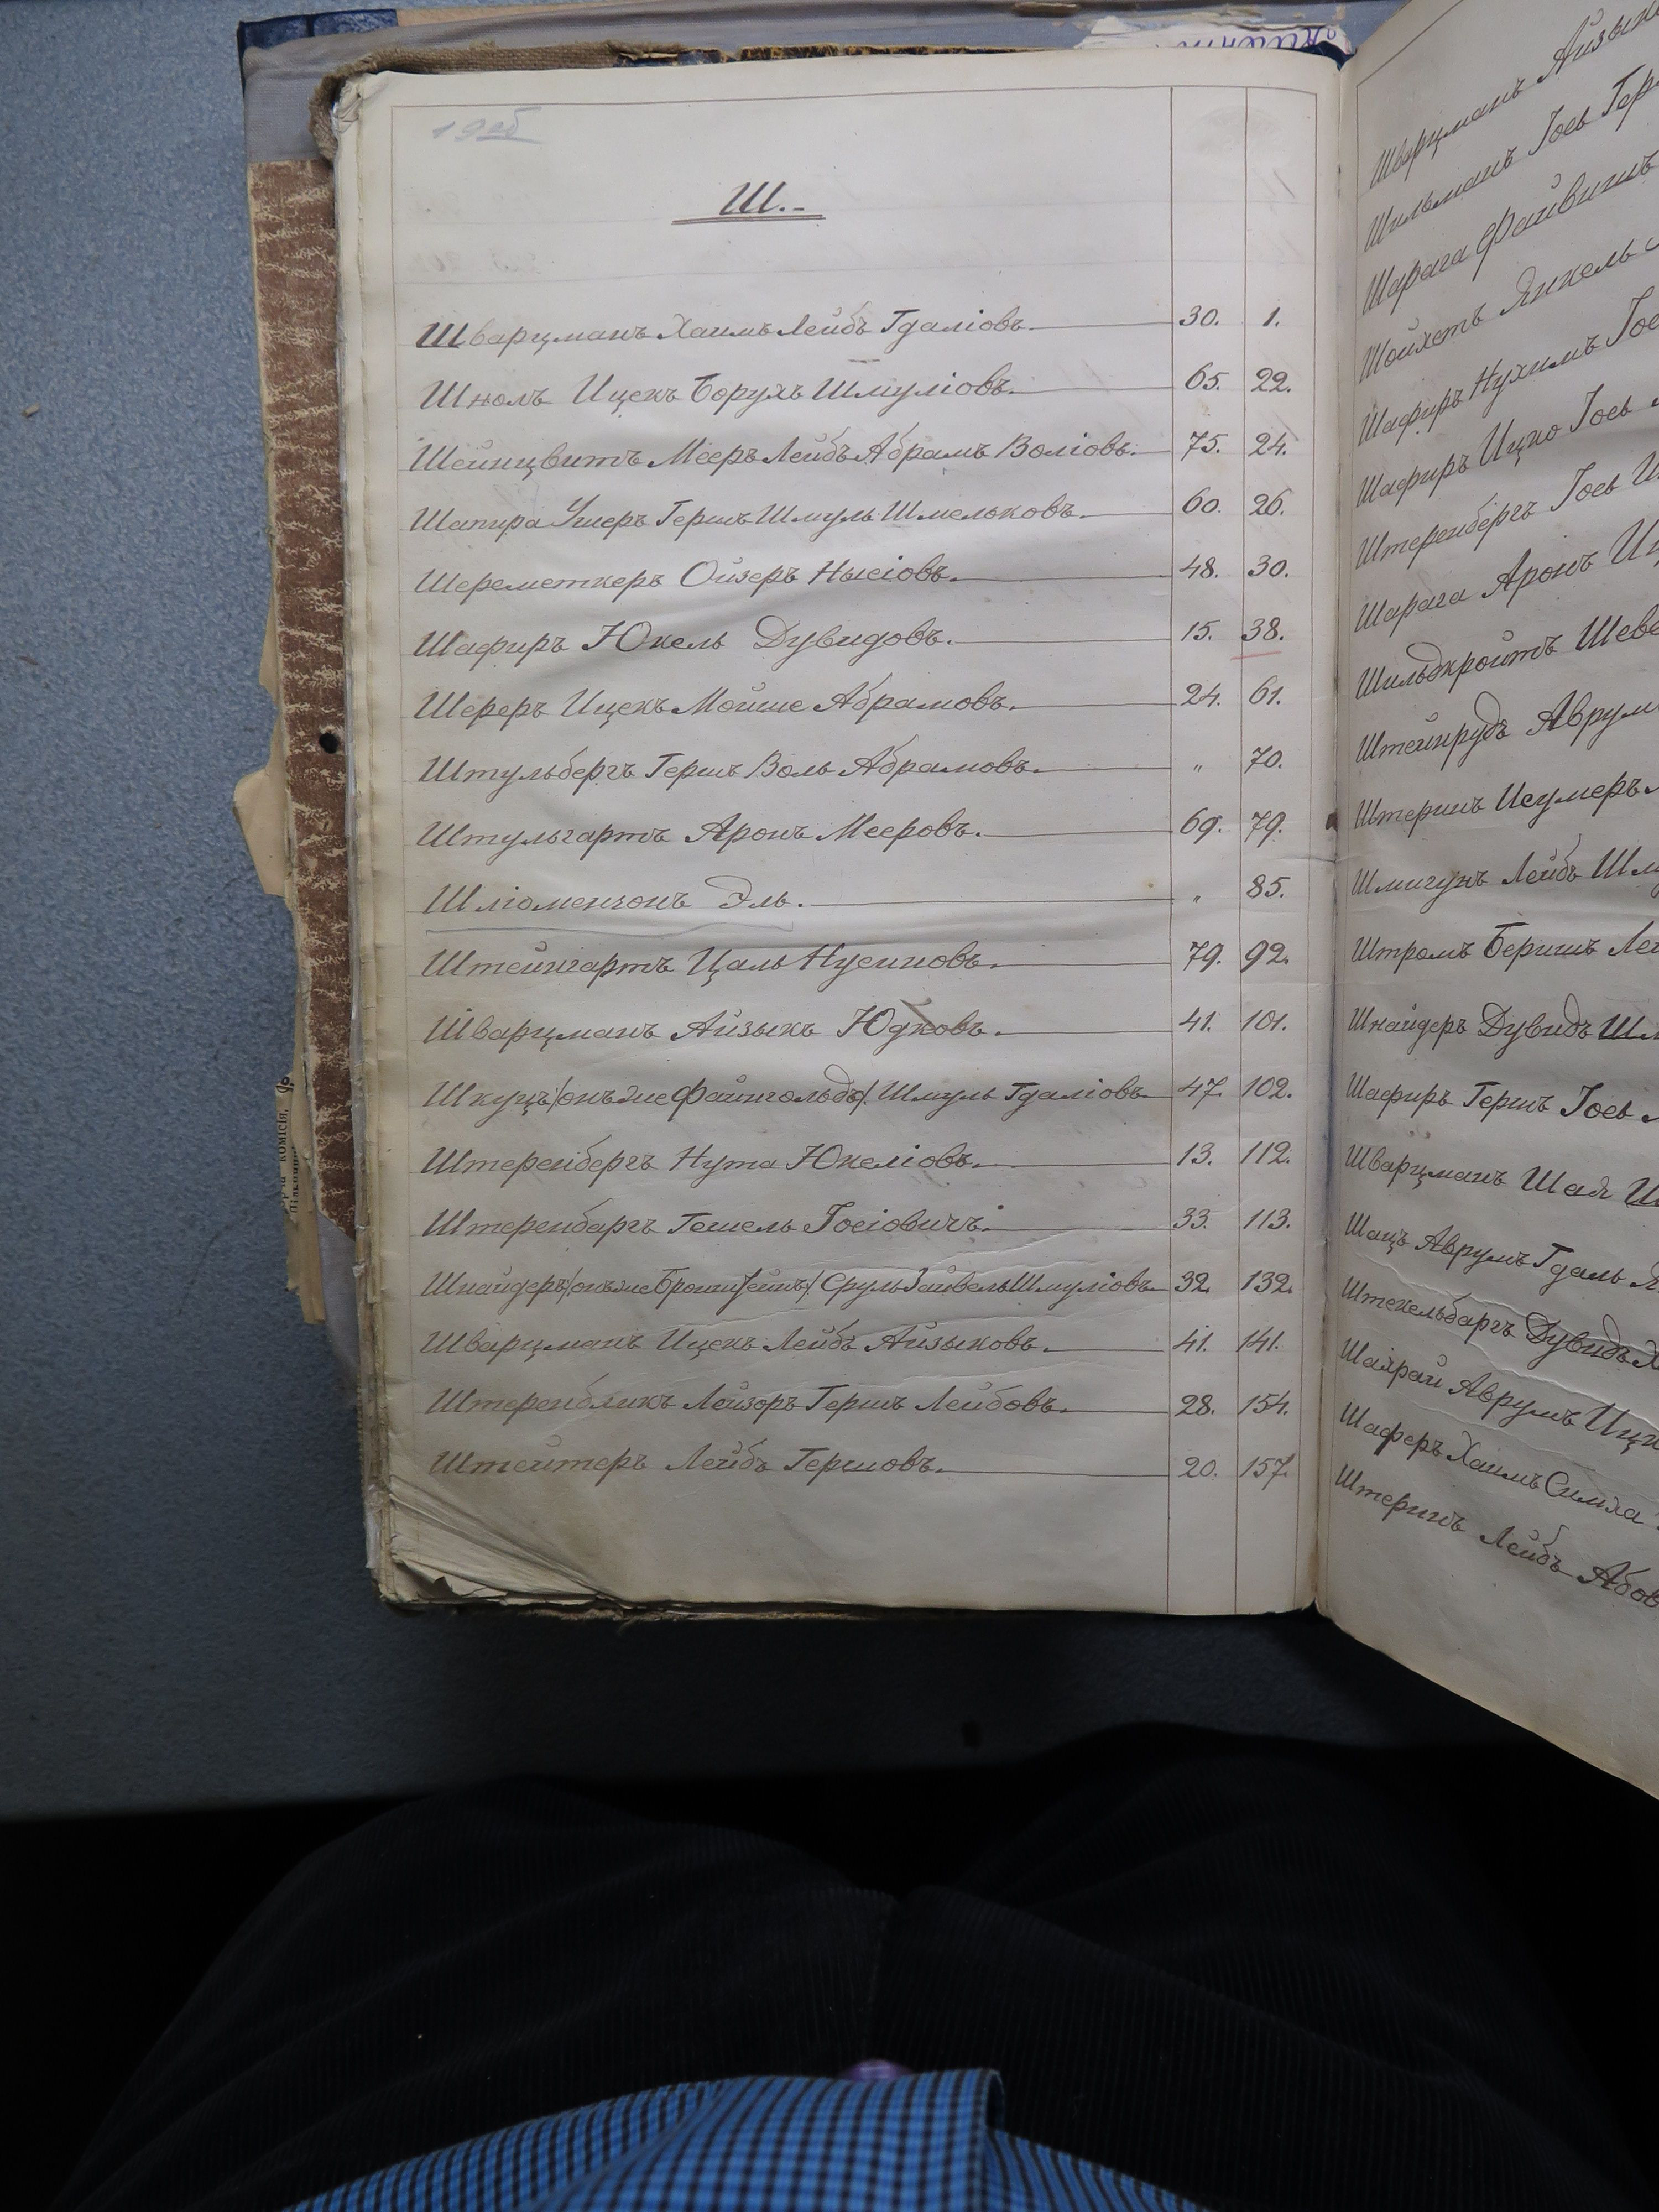 19об
Ш.-
Шварцманъ Хаимъ Лейбъ Гдаліовъ. 30. 1.
Шноль Ицекъ Борухъ Шмуліовъ. 65. 22.
Шейнцвитъ Мееръ Лейбъ Абрамъ Воліовъ. 75. 24.
Шапира Ушеръ Гершъ Шмуль Шмельковъ. 60. 26.
Шереметкеръ Ойзеръ Нысіовъ. 48. 30.
Шафиръ Юкель Дувидовъ. 15. 38.
Шереръ Ицекъ Мойше Абрамовъ. 24. 61.
Штульбергъ Гершъ Воль Абрамовъ. " 70.
Штульгартъ Аронъ Мееровъ. 69. 79.
Шліомензонъ Эль. " 85.
Штейнгартъ Цаль Нусиновъ. 79. 92.
Шварцманъ Айзыкъ Юдковъ. 41. 101.
Шкуцъ /онъ же Файнгольдъ/. Шмуль Гдаліовъ 47. 102.
Штеренбергъ Нута Юкеліовъ. 13. 112.
Штеренбаргъ Гешель Іосіовичъ. 33. 113.
Шнайдеръ /онъ же Бронштейнъ/ Сруль Зайвель Шмуліовъ 32. 132.
Шварцманъ Ицекъ Лейбъ Айзыковъ. 41. 141.
Штеренбликъ Лейзоръ Гершъ Лейбовъ. 28. 154.
Штейтеръ Лейбъ Гершовъ. 20. 157.
Шварцманъ Айзыкъ
Шильманъ Іось Гер
Шарага Файвишъ
Шойхетъ Янкель
Шафиръ Нухимъ Іос
Шафиръ Ицко Іось
Штеренбергъ Іось И
Шарага Аронъ Иц
Шильдкройтъ Шев
Штейнрудъ Аврум
Штеринъ Исумеръ
Шмигунъ Лейбъ Шм
Штромъ Беришъ Лей
Шнайдеръ Дувидъ Шл
Шафиръ Гершъ Іось
Шварцманъ Шая
Шацъ Аврумъ Гдаль
Штекельбаргъ Дувидъ
Шайрай Аврумъ Ицк
Шаферъ Хаимъ Симха
Штеринъ Лейбъ Абов